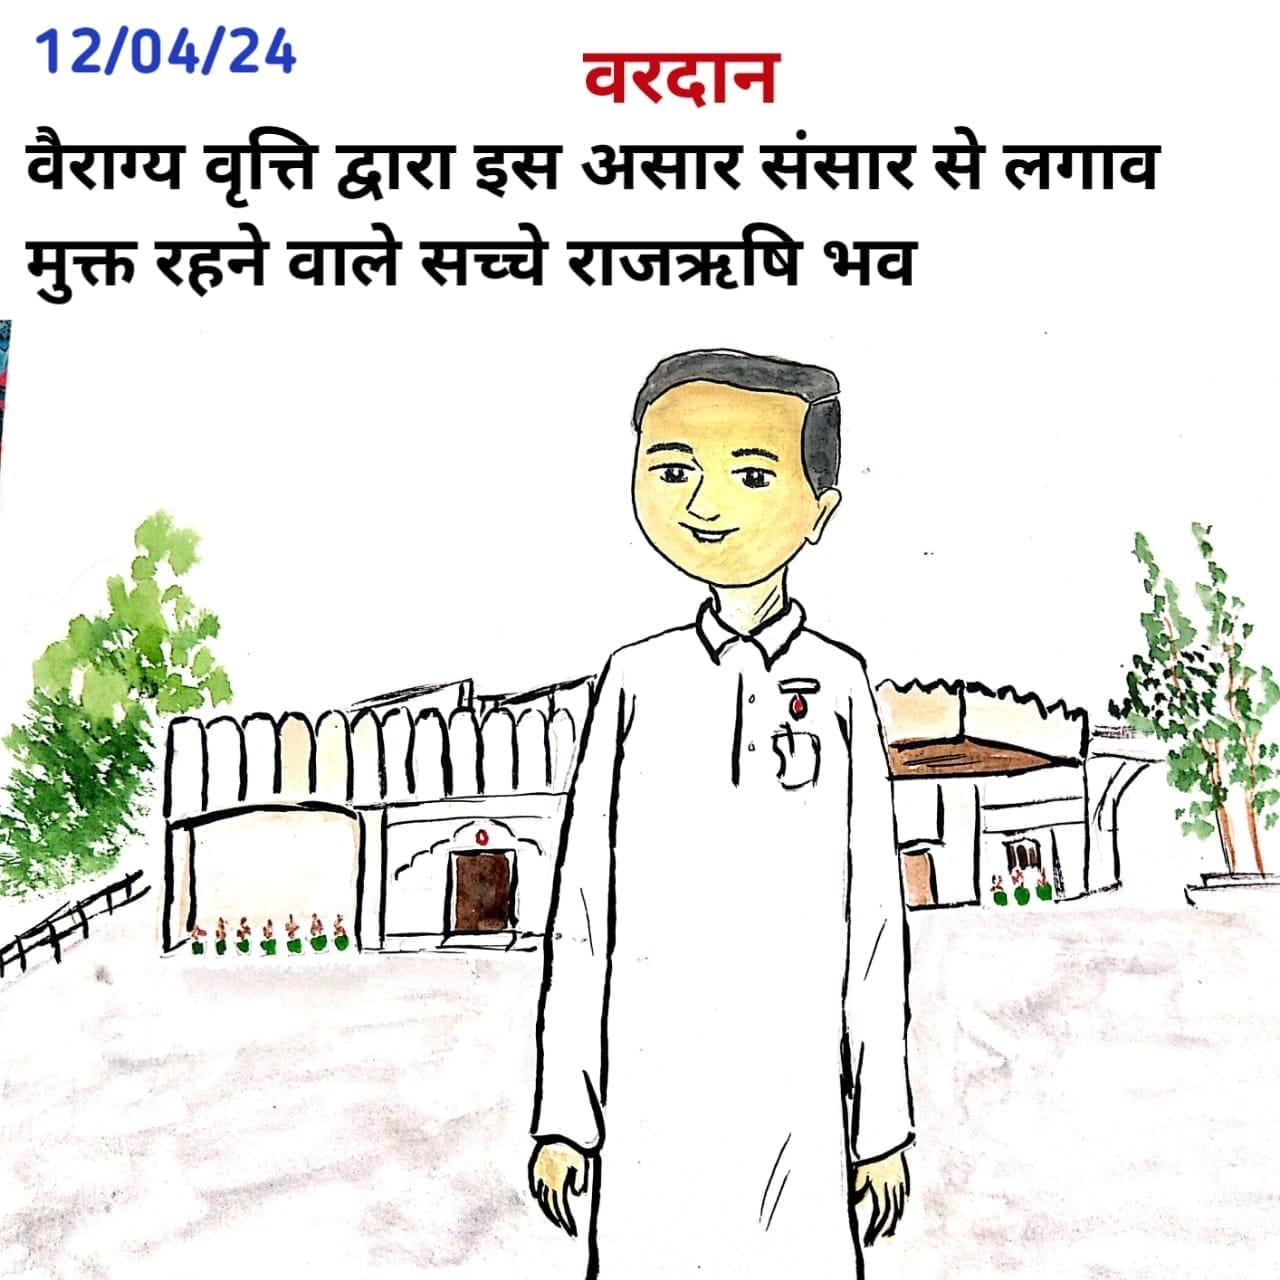 12/04/24
वरदान
वैराग्य वृत्ति द्वारा इस असार संसार से लगाव
मुक्त रहने वाले सच्चे राजऋषि भव